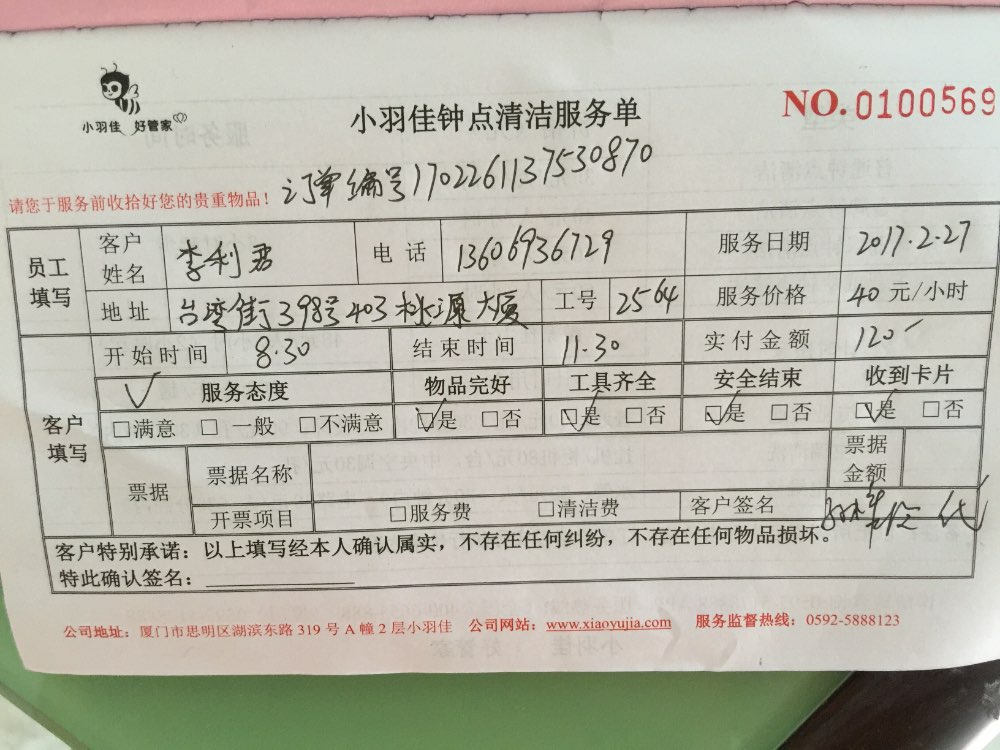 小羽佳 好管家
小羽佳钟点清洁服务单
NO.0100569
请您于服务前收拾好您的贵重物品！
订单编号1702261137530870
员工填写 客户姓名 李利君 电话 13606936729 服务日期 2017.2.27
地址 台湾街398号403桃源大厦 工号 2564 服务价格 40 元/小时
客户填写 开始时间 8.30 结束时间 11.30 实付金额 120
服务态度 物品完好 工具齐全 安全结束 收到卡片
□满意 □一般 □不满意 ☑是 □否 ☑是 □否 ☑是 □否 ☑是 □否
票据 票据名称 票据金额
开票项目 □服务费 □清洁费 客户签名 代
客户特别承诺：以上填写经本人确认属实，不存在任何纠纷，不存在任何物品损坏。
特此确认签名：
公司地址：厦门市思明区湖滨东路 319 号 A 幢 2 层小羽佳 公司网站：www.xiaoyujia.com 服务监督热线：0592-5888123